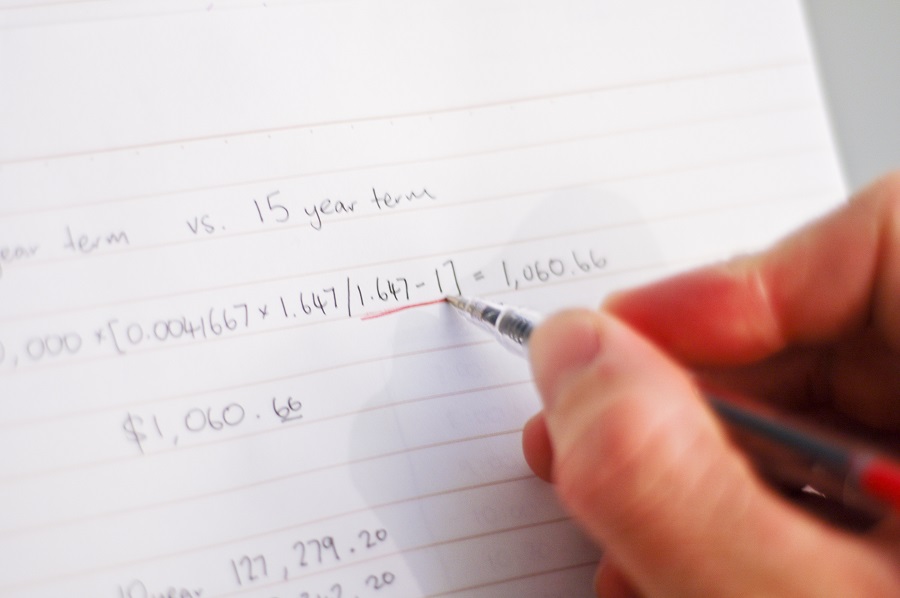 year term vs. 15 year term
0,000 ×[0.0041667 × 1.647/1.647-1] = 1,060.66
$1,060.66
10 year 127,279.20
242.20